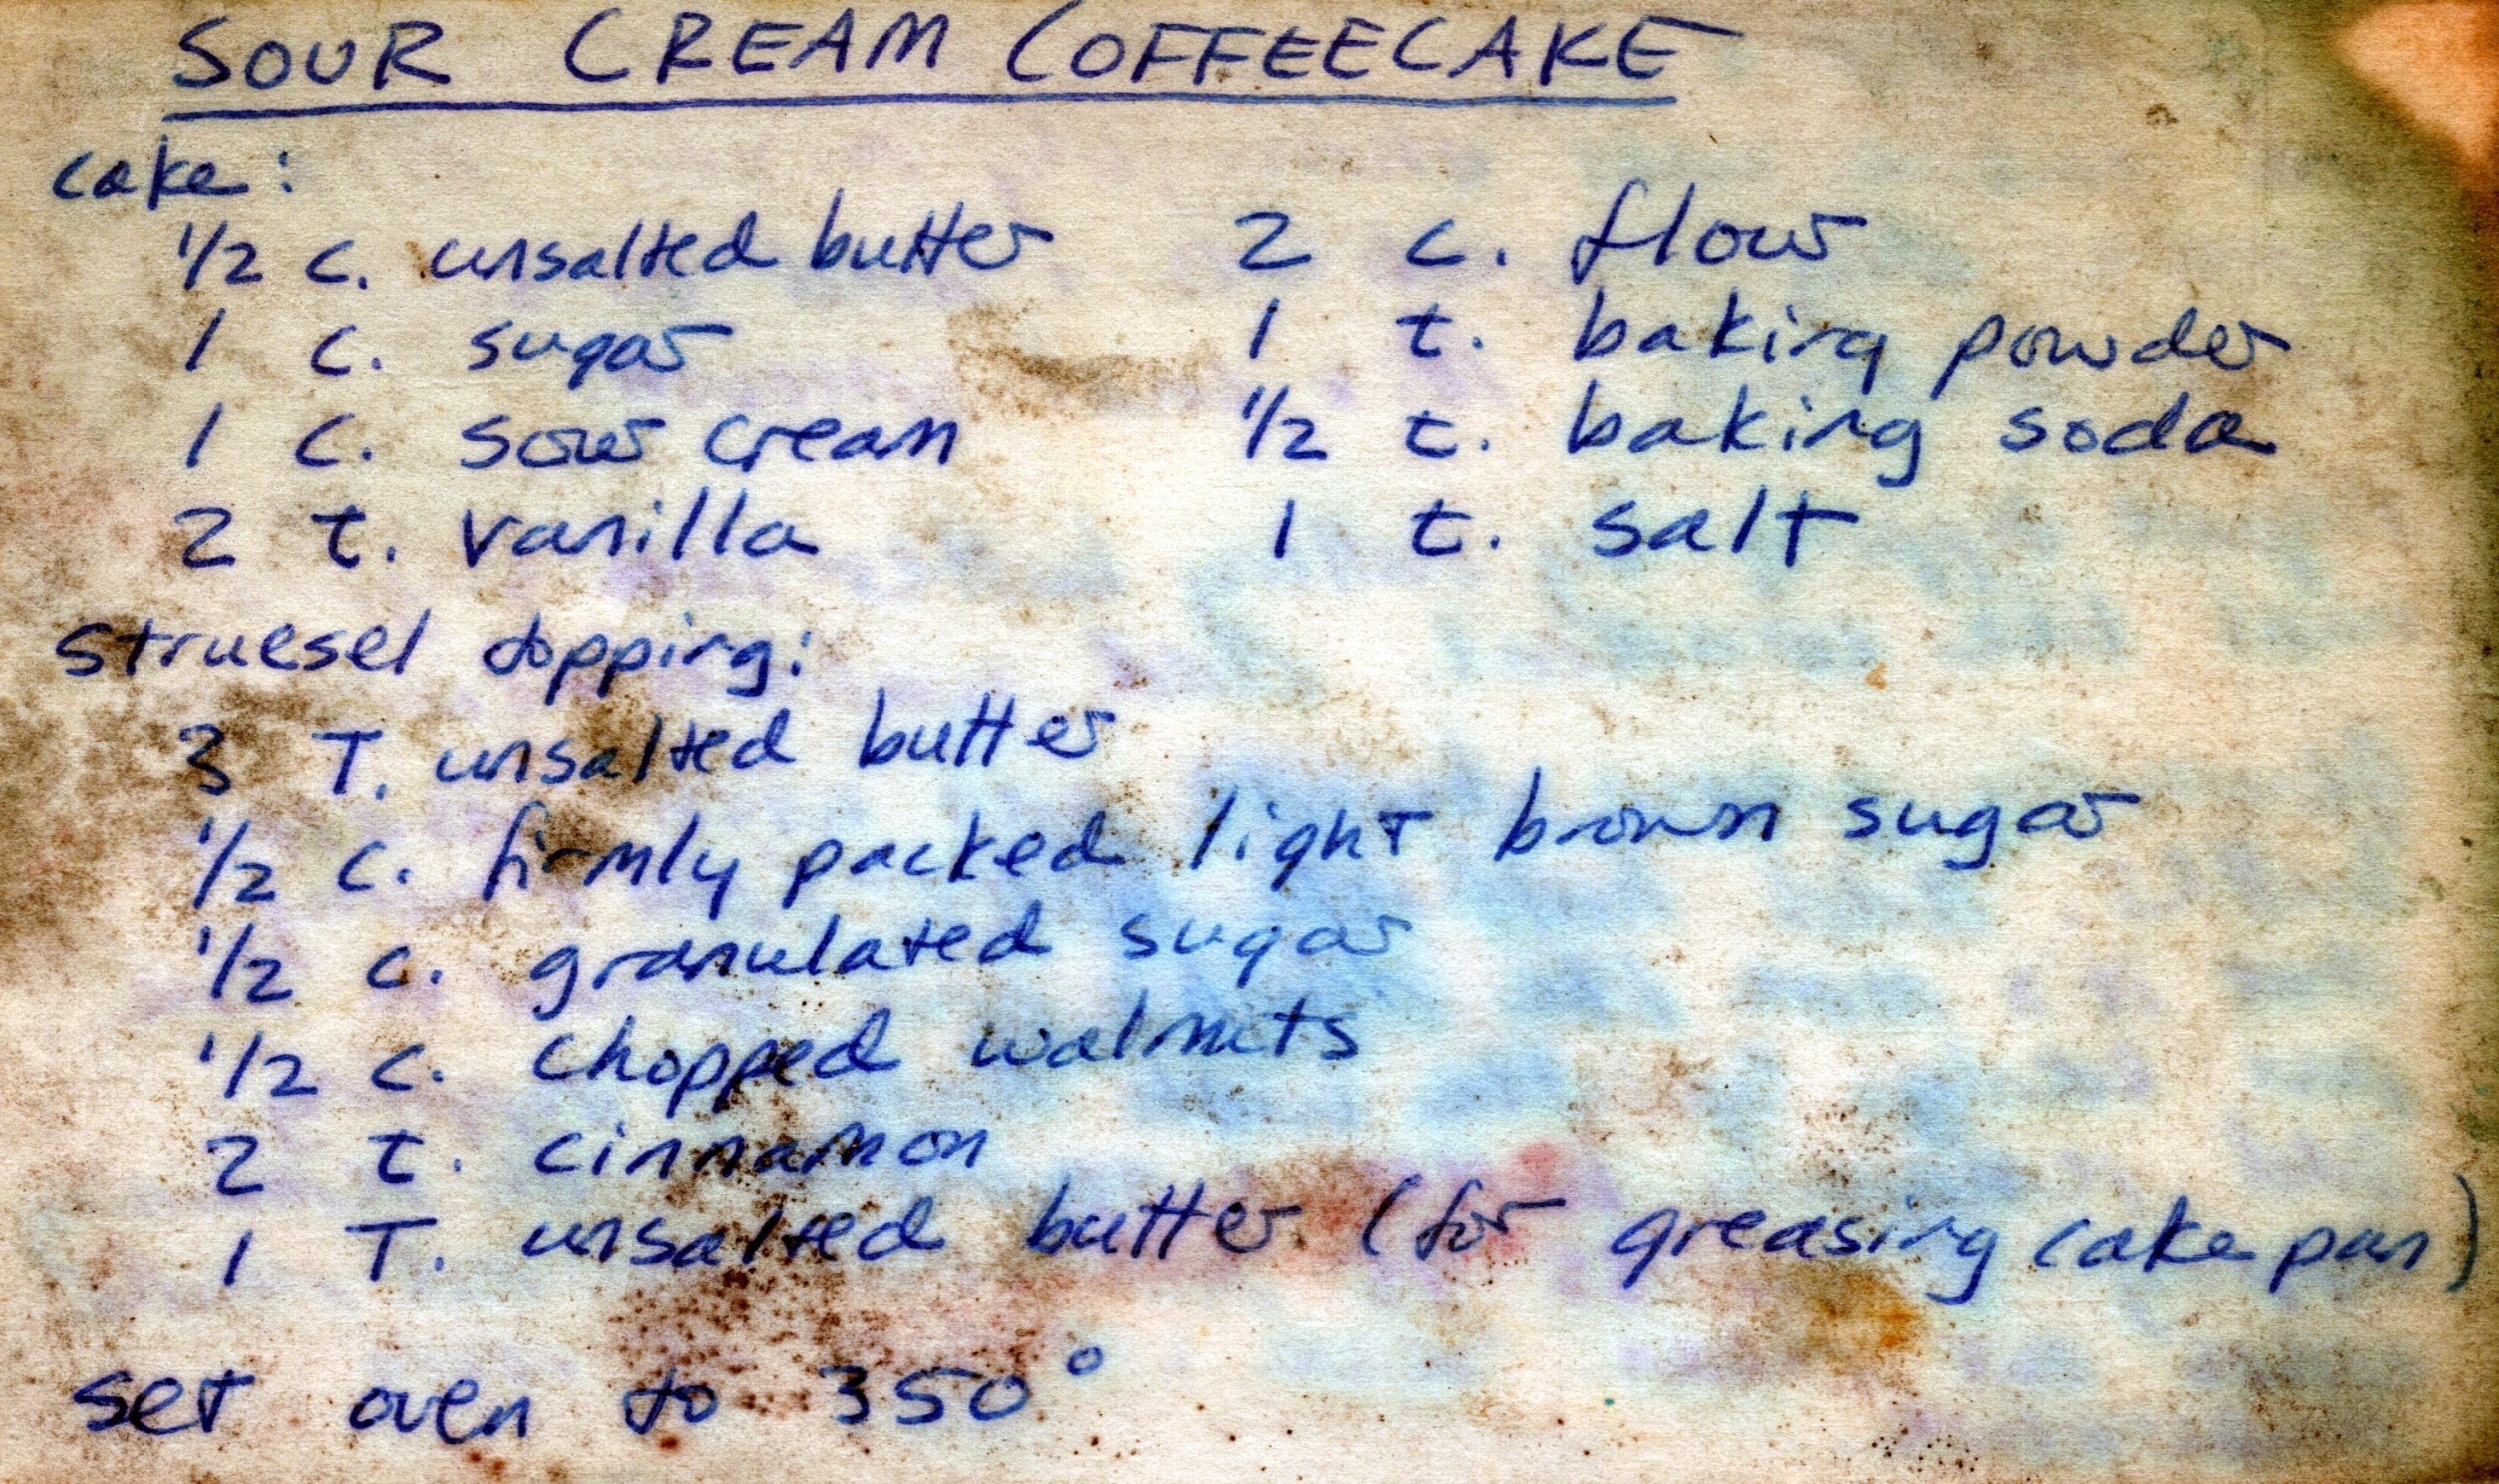 SOUR CREAM COFFEECAKE
cake:
1/2 c. unsalted butter
1 c. sugar
1 c. sour cream
2 t. vanilla
2 c. flour
1 t. baking powder
1/2 t. baking soda
1 t. salt
struesel topping:
3 T. unsalted butter
1/2 c. firmly packed light brown sugar
1/2 c. granulated sugar
1/2 c. chopped walnuts
2 t. cinnamon
1 T. unsalted butter (for greasing cake pan)
set oven to 350°